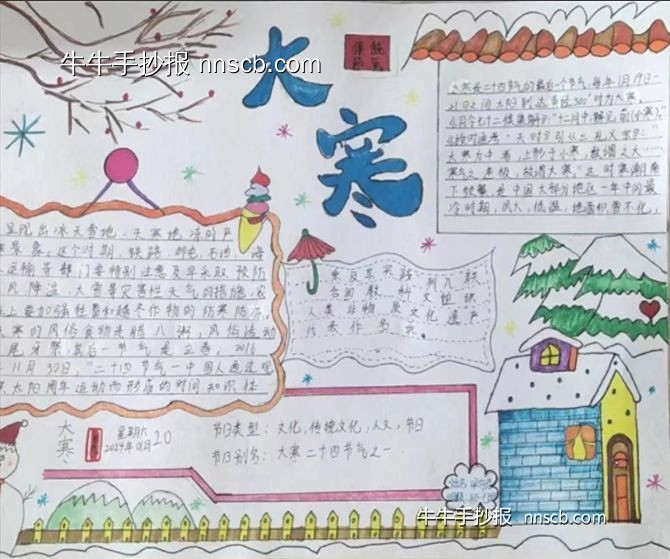 牛牛手抄报 nnscb.com
大
寒
傳統
節氣
大寒是二十四节气的最后一个节气,每年1月19日—
21日之间太阳到达黄经300°时为大寒。
《月令七十二候集解》:"十二月中,解见前(小寒)"
《授时通考·天时》引《三礼义宗》:"
大寒为中者,上形于小寒,故谓之大……
寒气之逆极,故谓大寒。"这时寒潮南
下频繁,是中国大部分地区一年中的最
冷时期,风大,低温,地面积雪不化,
呈现出冰天雪地、天寒地冻的严
寒景象。这个时期,铁路、邮电、石油、海
运输等部门要特别注意及早采取预防
风降温、大雪等灾害性天气的措施。农
上要加强牲畜和越冬作物的防寒防冻。
大寒的风俗食物是腊八粥,风俗活动
尾牙祭,其后一节气是立春。2016
11月30日,"二十四节气—中国人通过观
太阳周年运动而形成的时间知识体
系及其实践"列入联
合国教科文组织
人类非物质文化遗产
代表作名录。
大
寒
星期六
2024年01月20
节日类型:文化,传统文化,人文,节日
节日别名:大寒二十四节气之一
牛牛手抄报 nnscb.com